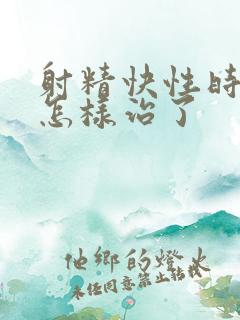 射精快性時
怎樣治了
他鄉的燈火
未经同意禁止转载